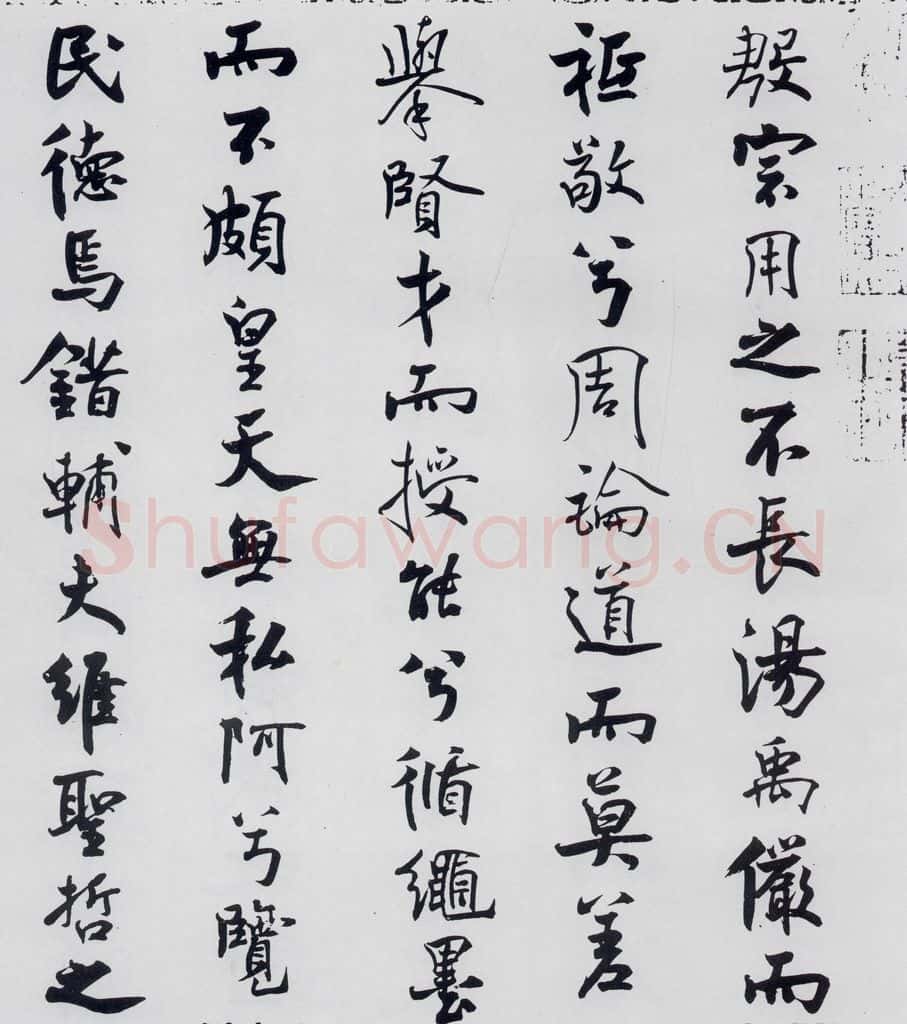 殷宗用之不長湯禹儼而
祗敬兮周論道而莫差
舉賢才而授能兮循繩墨
而不頗皇天無私阿兮覽
民德焉錯輔夫維聖哲之
Shufawang.CN